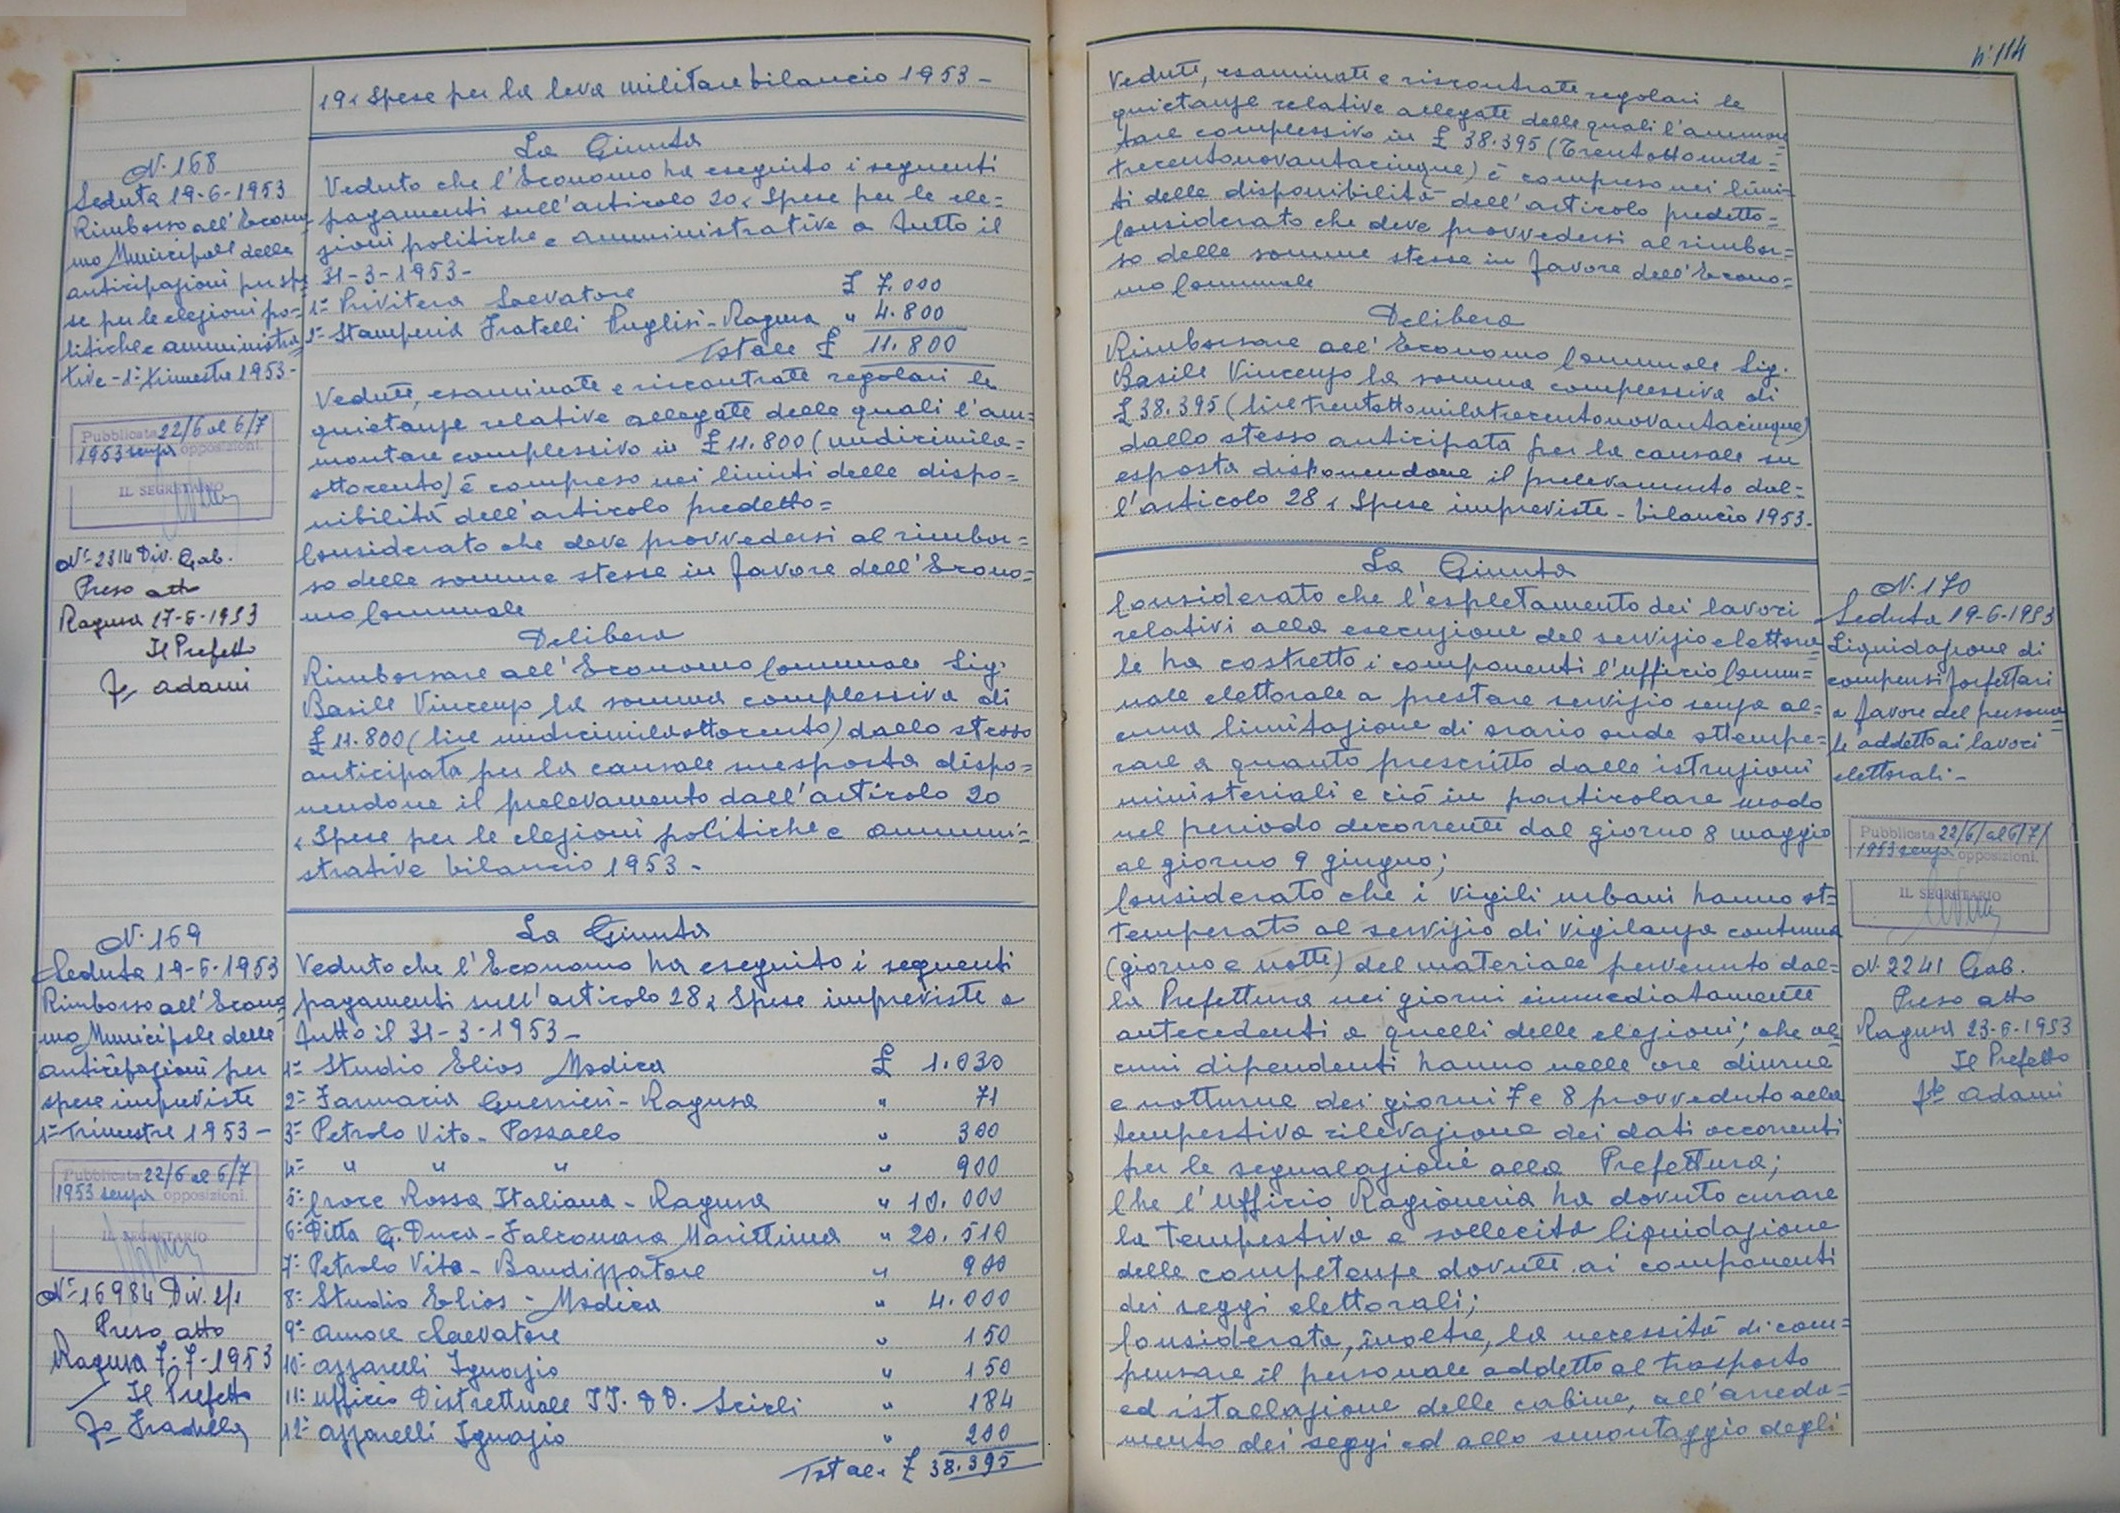 19 " Spese per la leva militare bilancio 1953 -
N. 168
Seduta 19-6-1953
Rimborso all'Econo
mo Municipale delle
anticipazioni per spe
se per le elezioni po=
litiche e amministra
tive - 1° trimestre 1953 -
Pubblicata 22/6 al 6/7
1953 senza opposizioni.
IL SEGRETARIO
N° 2314 Div. Gab.
Preso atto
Ragusa 27-6-1953
Il Prefetto
F° Adami
La Giunta
Veduto che l'Economo ha eseguito i seguenti
pagamenti sull'articolo 20 " Spese per le ele=
zioni politiche e amministrative a tutto il
31-3-1953 -
1° Privitera Salvatore £ 7.000
2° Stamperia Fratelli Puglisi - Ragusa " 4.800
Totale £ 11.800
Vedute, esaminate e riscontrate regolari le
quietanze relative allegate delle quali l'am=
montare complessivo in £ 11.800 (undicimila=
ottocento) è compreso nei limiti delle dispo=
nibilità dell'articolo predetto =
Considerato che deve provvedersi al rimbor=
so delle somme stesse in favore dell'Econo=
mo Comunale
Delibera
Rimborsare all'Economo Comunale Sig.
Basile Vincenzo la somma complessiva di
£ 11.800 (lire undicimilaottocento) dallo stesso
anticipata per la causale suesposta dispo=
nendone il prelevamento dall'articolo 20
" Spese per le elezioni politiche e ammini=
strative bilancio 1953 -
N. 169
Seduta 19-6-1953
Rimborso all'Econo
mo Municipale delle
anticipazioni per
spese impreviste
1° Trimestre 1953 -
Pubblicata 22/6 al 6/7
1953 senza opposizioni.
IL SEGRETARIO
N° 16984 Div. 2/1
Preso atto
Ragusa 7-7-1953
Il Prefetto
F° Fradella
La Giunta
Veduto che l'Economo ha eseguito i seguenti
pagamenti sull'articolo 28 " Spese impreviste a
tutto il 31-3-1953 -
1° Studio Elios Modica £ 1.030
2° Farmacia Guerrieri - Ragusa " 71
3° Petrolo Vito - Pozzallo " 300
4° " " " " 900
5° Croce Rossa Italiana - Ragusa " 10.000
6° Ditta G. Duca - Falconara Marittima " 20.510
7° Petrolo Vito - Bandizzatore " 900
8° Studio Elios - Modica " 4.000
9° Amore Salvatore " 150
10° Azzarelli Ignazio " 150
11° Ufficio Distrettuale II. DD. Scicli " 184
12° Azzarelli Ignazio " 200
Totale £ 38.395
N° 114
Vedute, esaminate e riscontrate regolari le
quietanze relative allegate delle quali l'ammon
tare complessivo in £ 38.395 (Trentottomila=
trecentonovantacinque) è compreso nei limi=
ti delle disponibilità dell'articolo predetto =
Considerato che deve provvedersi al rimbor=
so delle somme stesse in favore dell'Econo=
mo Comunale
Delibera
Rimborsare all'Economo Comunale Sig.
Basile Vincenzo la somma complessiva di
£ 38.395 (lire trentottomilatrecentonovantacinque)
dallo stesso anticipata per la causale su
esposta disponendone il prelevamento dal=
l'articolo 28 " Spese impreviste - bilancio 1953 -
La Giunta
Considerato che l'espletamento dei lavori
relativi alla esecuzione del servizio elettora=
le ha costretto i componenti l'Ufficio Comu=
nale elettorale a prestare servizio senza al=
cuna limitazione di orario onde ottempe=
rare a quanto prescritto dalle istruzioni
ministeriali e ciò in particolare modo
nel periodo decorrente dal giorno 8 maggio
al giorno 9 giugno;
Considerato che i Vigili urbani hanno ot=
temperato al servizio di vigilanza continua
(giorno e notte) del materiale pervenuto dal=
la Prefettura nei giorni immediatamente
antecedenti a quelli delle elezioni; che al
cuni dipendenti hanno nelle ore diurne
e notturne dei giorni 7 e 8 provveduto alla
tempestiva rilevazione dei dati occorrenti
per le segnalazioni alla Prefettura;
Che l'Ufficio Ragioneria ha dovuto curare
la tempestiva e sollecita liquidazione
delle competenze dovute ai componenti
dei seggi elettorali;
Considerata, inoltre, la necessità di com=
pensare il personale addetto al trasporto
ed istallazione delle cabine, all'arreda=
mento dei seggi ed allo smontaggio degli
N. 170
Seduta 19-6-1953
Liquidazione di
compensi forfettari
a favore del persona
le addetto ai lavori
elettorali -
Pubblicata 22/6/ al 6/7/
1953 senza opposizioni.
IL SEGRETARIO
N. 2241 Gab.
Preso atto
Ragusa 23-6-1953
Il Prefetto
F.to Adami